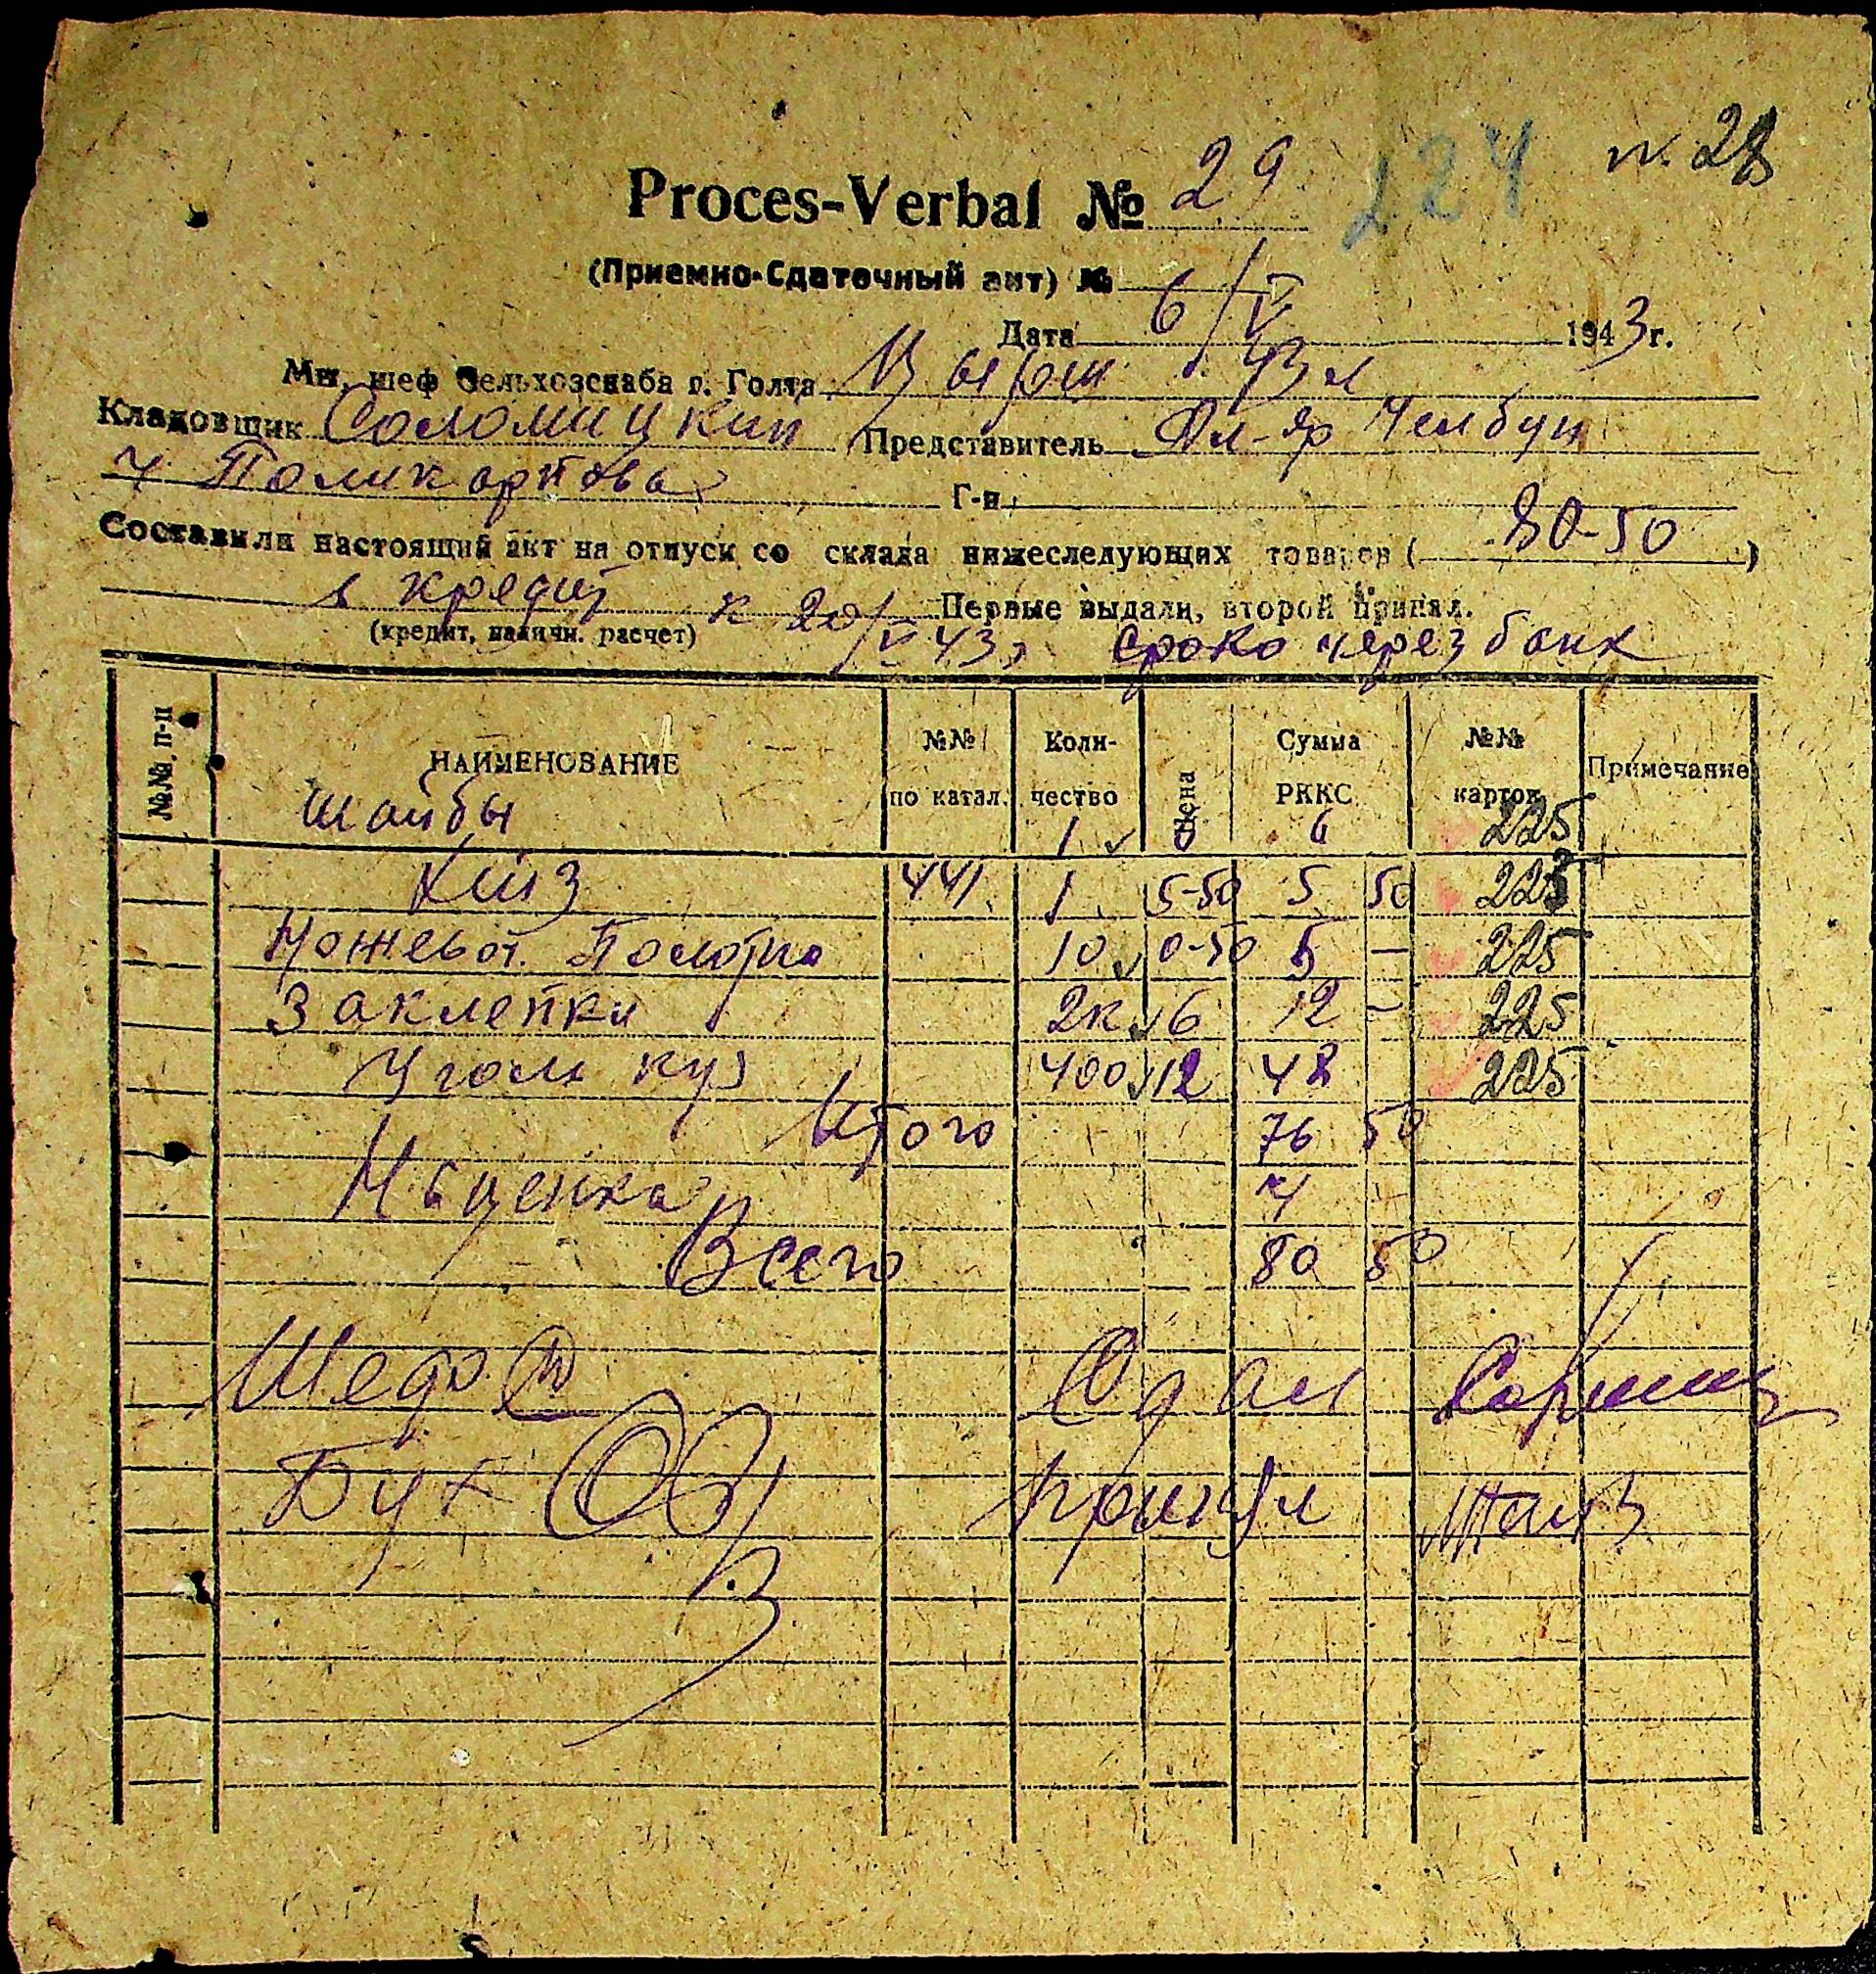 224 n. 28
Proces-Verbal № 29
(Приемно-Сдаточный акт) №
Дата 6/V 1943 г.
Мы, шеф Сельхозснаба г. Голта 43 г
Кладовщик Соломицкий Представитель
Поликарпова Г-н
Составили настоящий акт на отпуск со склада нижеследующих товаров ( 80-50 )
в кредит к 20/V 43 г Первые выдали, второй принял.
(кредит, наличн. расчет) сроко через банк
№№ п-п НАИМЕНОВАНИЕ №№ по катал. Коли-чество Цена Сумма РККС №№ карток Примечание
Шайбы 1 6 6 225
441 1 5-50 5 50 225
Ножевоч. Полотно 10 0-50 5 — 225
Заклепки 2к 6 12 — 225
Уголь куз 400 12 48 225
Итого 76 50
Наценка 4
Всего 80 50
Шеф Сдал
Бух Принял